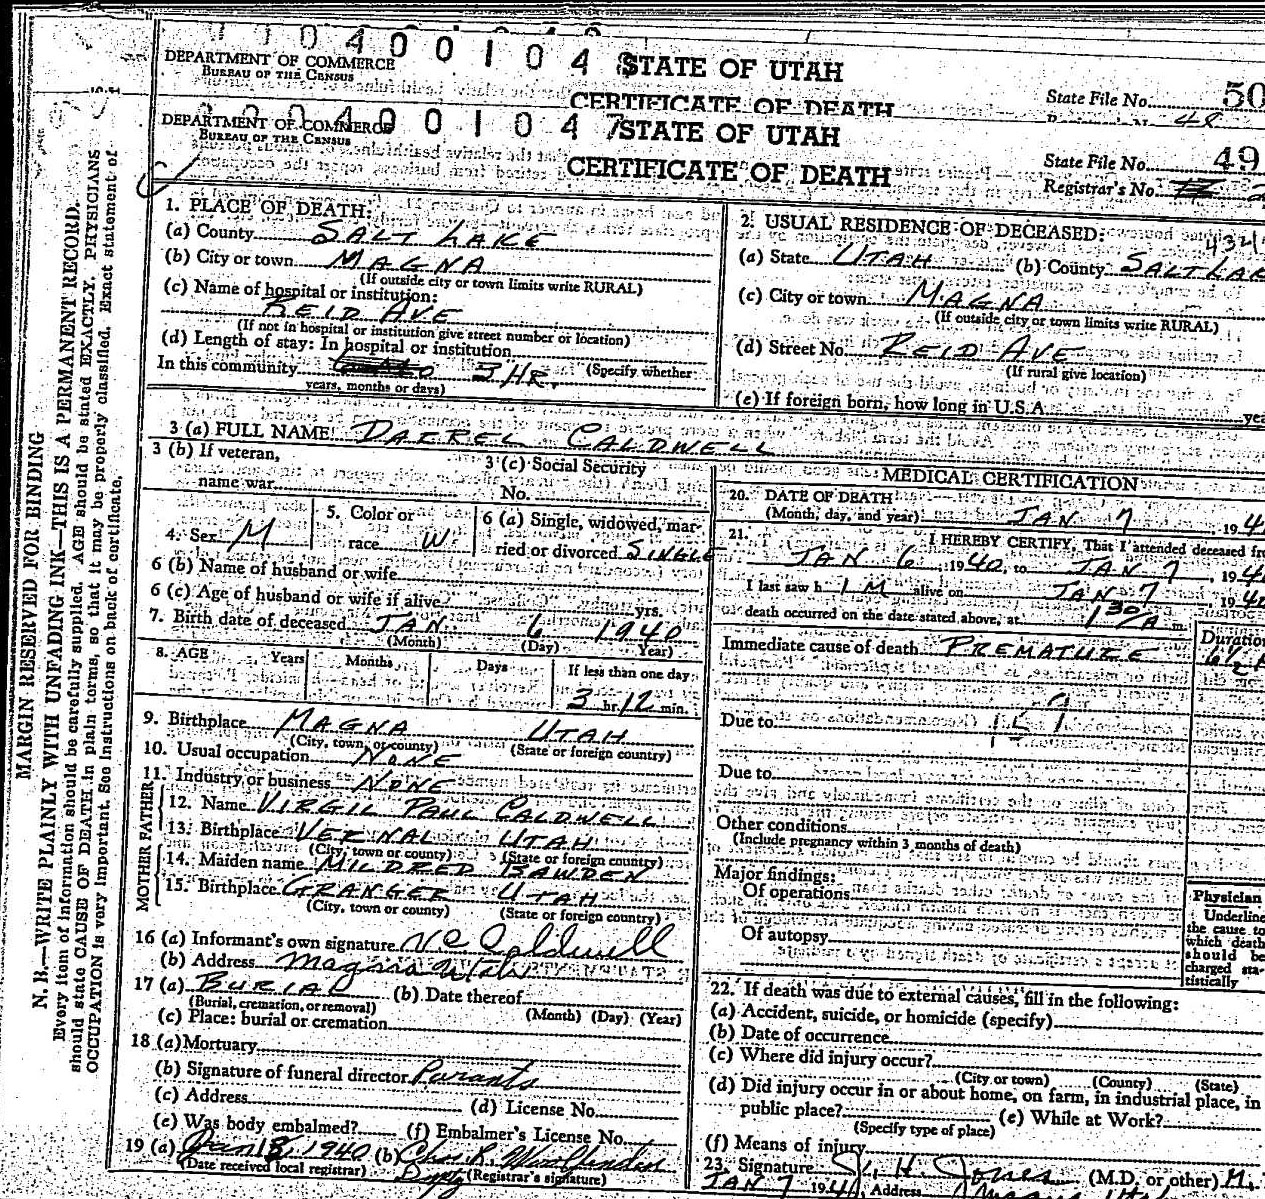 1 1 0 4 0 0 1 0 4 8
DEPARTMENT OF COMMERCE
BUREAU OF THE CENSUS
STATE OF UTAH
CERTIFICATE OF DEATH
State File No. 50
48
0 4 0 0 1 0 4 7
DEPARTMENT OF COMMERCE
BUREAU OF THE CENSUS
STATE OF UTAH
CERTIFICATE OF DEATH
State File No. 49
Registrar's No.
MARGIN RESERVED FOR BINDING
N. B.—WRITE PLAINLY WITH UNFADING INK—THIS IS A PERMANENT RECORD.
Every item of information should be carefully supplied. AGE should be stated EXACTLY. PHYSICIANS
should state CAUSE OF DEATH in plain terms, so that it may be properly classified. Exact statement of
OCCUPATION is very important. See instructions on back of certificate.
1. PLACE OF DEATH:
(a) County SALT LAKE
(b) City or town MAGNA
(If outside city or town limits write RURAL)
(c) Name of hospital or institution:
REID AVE
(If not in hospital or institution give street number or location)
(d) Length of stay: In hospital or institution
In this community 3 HR. (Specify whether
years, months or days)
2. USUAL RESIDENCE OF DECEASED:
(a) State UTAH (b) County SALT LAK
(c) City or town MAGNA
(If outside city or town limits write RURAL)
(d) Street No. REID AVE
(If rural give location)
(e) If foreign born, how long in U.S.A. yea
3 (a) FULL NAME DARREL CALDWELL
3 (b) If veteran,
name war
3 (c) Social Security
No.
4. Sex M
5. Color or
race W.
6 (a) Single, widowed, mar-
ried or divorced SINGLE
6 (b) Name of husband or wife
6 (c) Age of husband or wife if alive yrs.
7. Birth date of deceased JAN. 6 1940
(Month) (Day) Year)
8. AGE Years Months Days If less than one day
3 hr. 12 min.
9. Birthplace MAGNA UTAH
(City, town, or county) (State or foreign country)
10. Usual occupation NONE
11. Industry or business NONE
FATHER
12. Name VIRGIL PAUL CALDWELL
13. Birthplace VERNAL UTAH
(City, town or county) (State or foreign country)
MOTHER
14. Maiden name MILDRED BAWDEN
15. Birthplace GRANGER UTAH
(City, town or county) (State or foreign country)
16 (a) Informant's own signature V P Caldwell
(b) Address Magna Utah
17 (a) BURIAL (b) Date thereof
(Burial, cremation, or removal) (Month) (Day) (Year)
(c) Place: burial or cremation
18 (a) Mortuary
(b) Signature of funeral director Parents
(c) Address (d) License No.
(e) Was body embalmed? (f) Embalmer's License No.
19 (a) Jan 18, 1940 (b) Chas. R.
(Date received local registrar) Dpty (Registrar's signature)
MEDICAL CERTIFICATION
20. DATE OF DEATH
(Month, day, and year) JAN 7, 194
21. I HEREBY CERTIFY, That I attended deceased fro
JAN 6, 1940, to JAN 7, 194
I last saw h IM alive on JAN 7, 194
death occurred on the date stated above, at 1 30/A m.
Immediate cause of death PREMATURE
Duration
6 1/2 H
Due to 159
Due to
Other conditions
(Include pregnancy within 3 months of death)
Major findings:
Of operations
Of autopsy
Physician
Underline
the cause to
which death
should be
charged sta-
tistically
22. If death was due to external causes, fill in the following:
(a) Accident, suicide, or homicide (specify)
(b) Date of occurrence
(c) Where did injury occur?
(City or town) (County) (State)
(d) Did injury occur in or about home, on farm, in industrial place, in
public place? (e) While at Work?
(Specify type of place)
(f) Means of injury
23. Signature H. Jones (M.D. or other) M.
JAN 7 194 Address Magna Utah